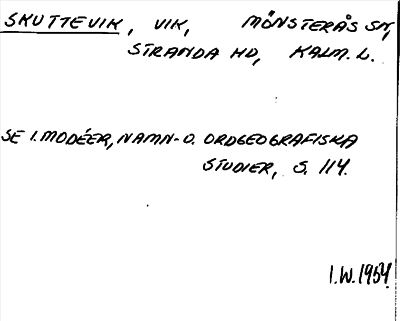 SKUTTEVIK, VIK, MÖNSTERÅS SN,
STRANDA HD, KALM. L.
SE I. MODÉER, NAMN- O. ORDGEOGRAFISKA
STUDIER, S. 114.
I.W. 1954.